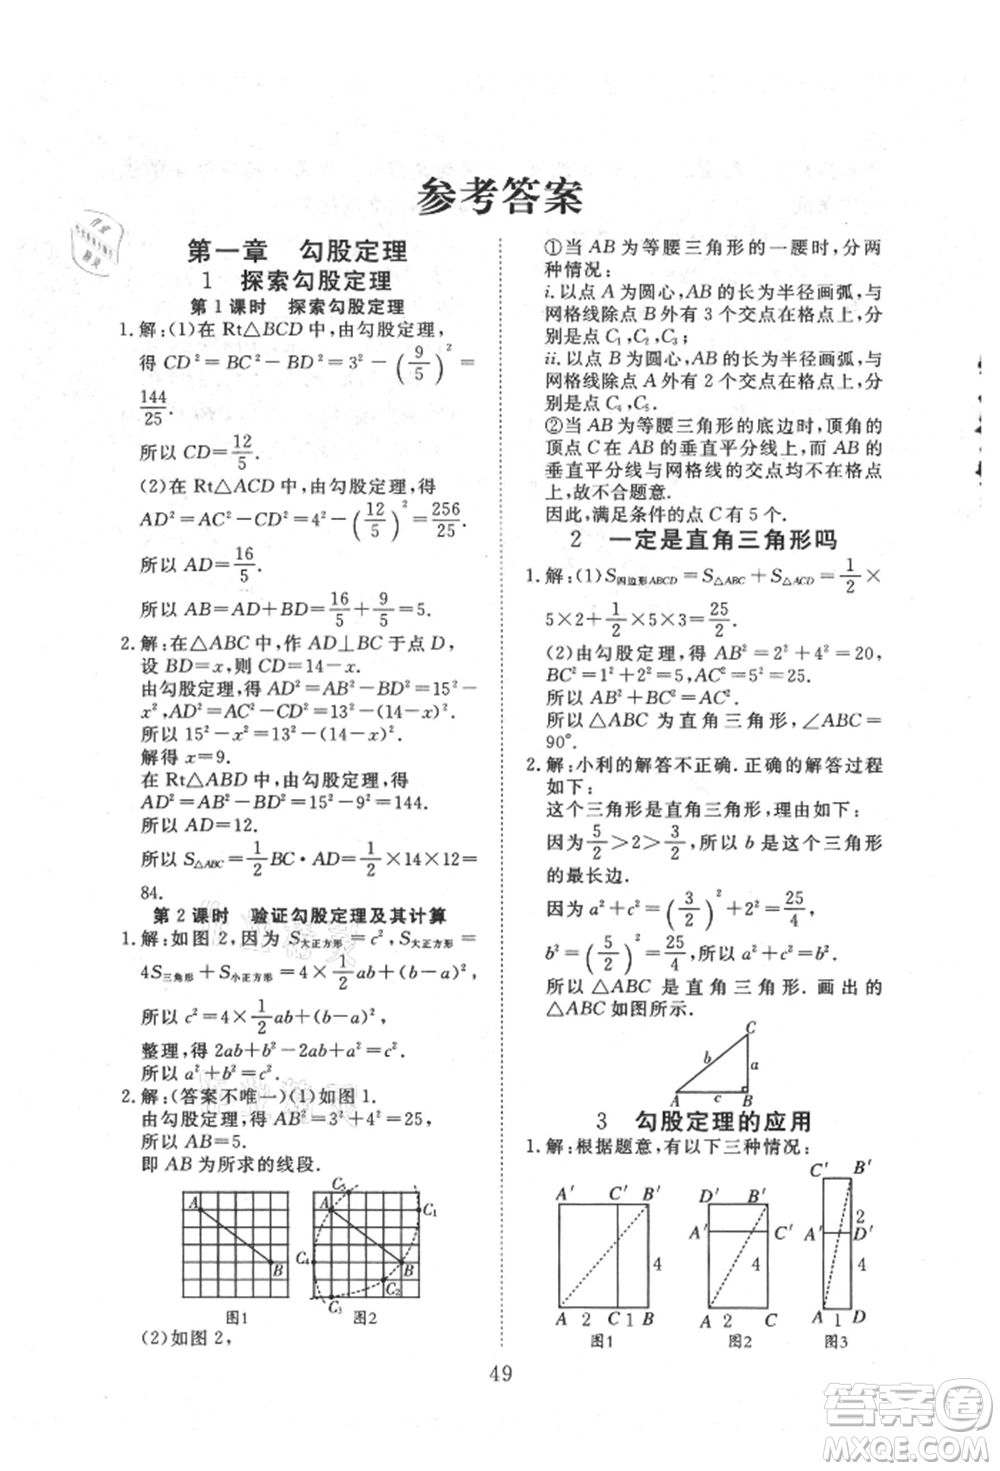 参考答案
第一章 勾股定理
1 探索勾股定理
第1课时 探索勾股定理
1.解:(1)在 Rt△BCD 中,由勾股定理,
得 CD²=BC²-BD²=3²-(9/5)²=
144/25.
所以 CD=12/5.
(2)在 Rt△ACD 中,由勾股定理,得
AD²=AC²-CD²=4²-(12/5)²=256/25.
所以 AD=16/5.
所以 AB=AD+BD=16/5+9/5=5.
2.解:在△ABC 中,作 AD⊥BC 于点 D,
设 BD=x,则 CD=14-x.
由勾股定理,得 AD²=AB²-BD²=15²-
x²,AD²=AC²-CD²=13²-(14-x)².
所以 15²-x²=13²-(14-x)².
解得 x=9.
在 Rt△ABD 中,由勾股定理,得
AD²=AB²-BD²=15²-9²=144.
所以 AD=12.
所以 S△ABC=1/2 BC·AD=1/2×14×12=
84.
第2课时 验证勾股定理及其计算
1.解:如图 2,因为 S大正方形=c²,S大正方形=
4S三角形+S小正方形=4×1/2ab+(b-a)²,
所以 c²=4×1/2ab+(b-a)².
整理,得 2ab+b²-2ab+a²=c².
所以 a²+b²=c².
2.解:(答案不唯一)(1)如图 1.
由勾股定理,得 AB²=3²+4²=5².
所以 AB=5.
即 AB 为所求的线段.
A
B
图1
C₅
A
C₁
C₄
B
C₂
C₃
图2
(2)如图 2,
①当 AB 为等腰三角形的一腰时,分两
种情况:
i.以点 A 为圆心,AB 的长为半径画弧,与
网格线除点 B 外有 3 个交点在格点上,
分别是点 C₁,C₂,C₃;
ii.以点 B 为圆心,AB 的长为半径画弧,与
网格线除点 A 外有 2 个交点在格点上,
分别是点 C₄,C₅.
②当 AB 为等腰三角形的底边时,顶角的
顶点 C 在 AB 的垂直平分线上,而 AB 的
垂直平分线与网格线的交点均不在格点
上,故不合题意.
因此,满足条件的点 C 有 5 个.
2 一定是直角三角形吗
1.解:(1)S四边形ABCD=S△ABC+S△ACD=1/2×
5×2+1/2×5×3=25/2.
(2)由勾股定理,得 AB²=2²+4²=20,
BC²=1²+2²=5,AC²=5²=25.
所以 AB²+BC²=AC².
所以△ABC 为直角三角形,∠ABC=
90°.
2.解:小利的解答不正确.正确的解答过程
如下:
这个三角形是直角三角形,理由如下:
因为5/2>2>3/2,所以 b 是这个三角形
的最长边.
因为 a²+c²=(3/2)²+2²=9/4+4=25/4,
b²=(5/2)²=25/4,所以 a²+c²=b².
所以 △ABC 是直角三角形.画出的
△ABC 如图所示.
C
b
a
A
c
B
3 勾股定理的应用
1.解:根据题意,有以下三种情况:
A′ C′ B′
4
A 2 C 1 B
图1
D′ B′
A′
4
A 2 B
图2
C′ B′
2
A′ D′
4
A 1 D
图3
49
答案圈
MXQE.COM